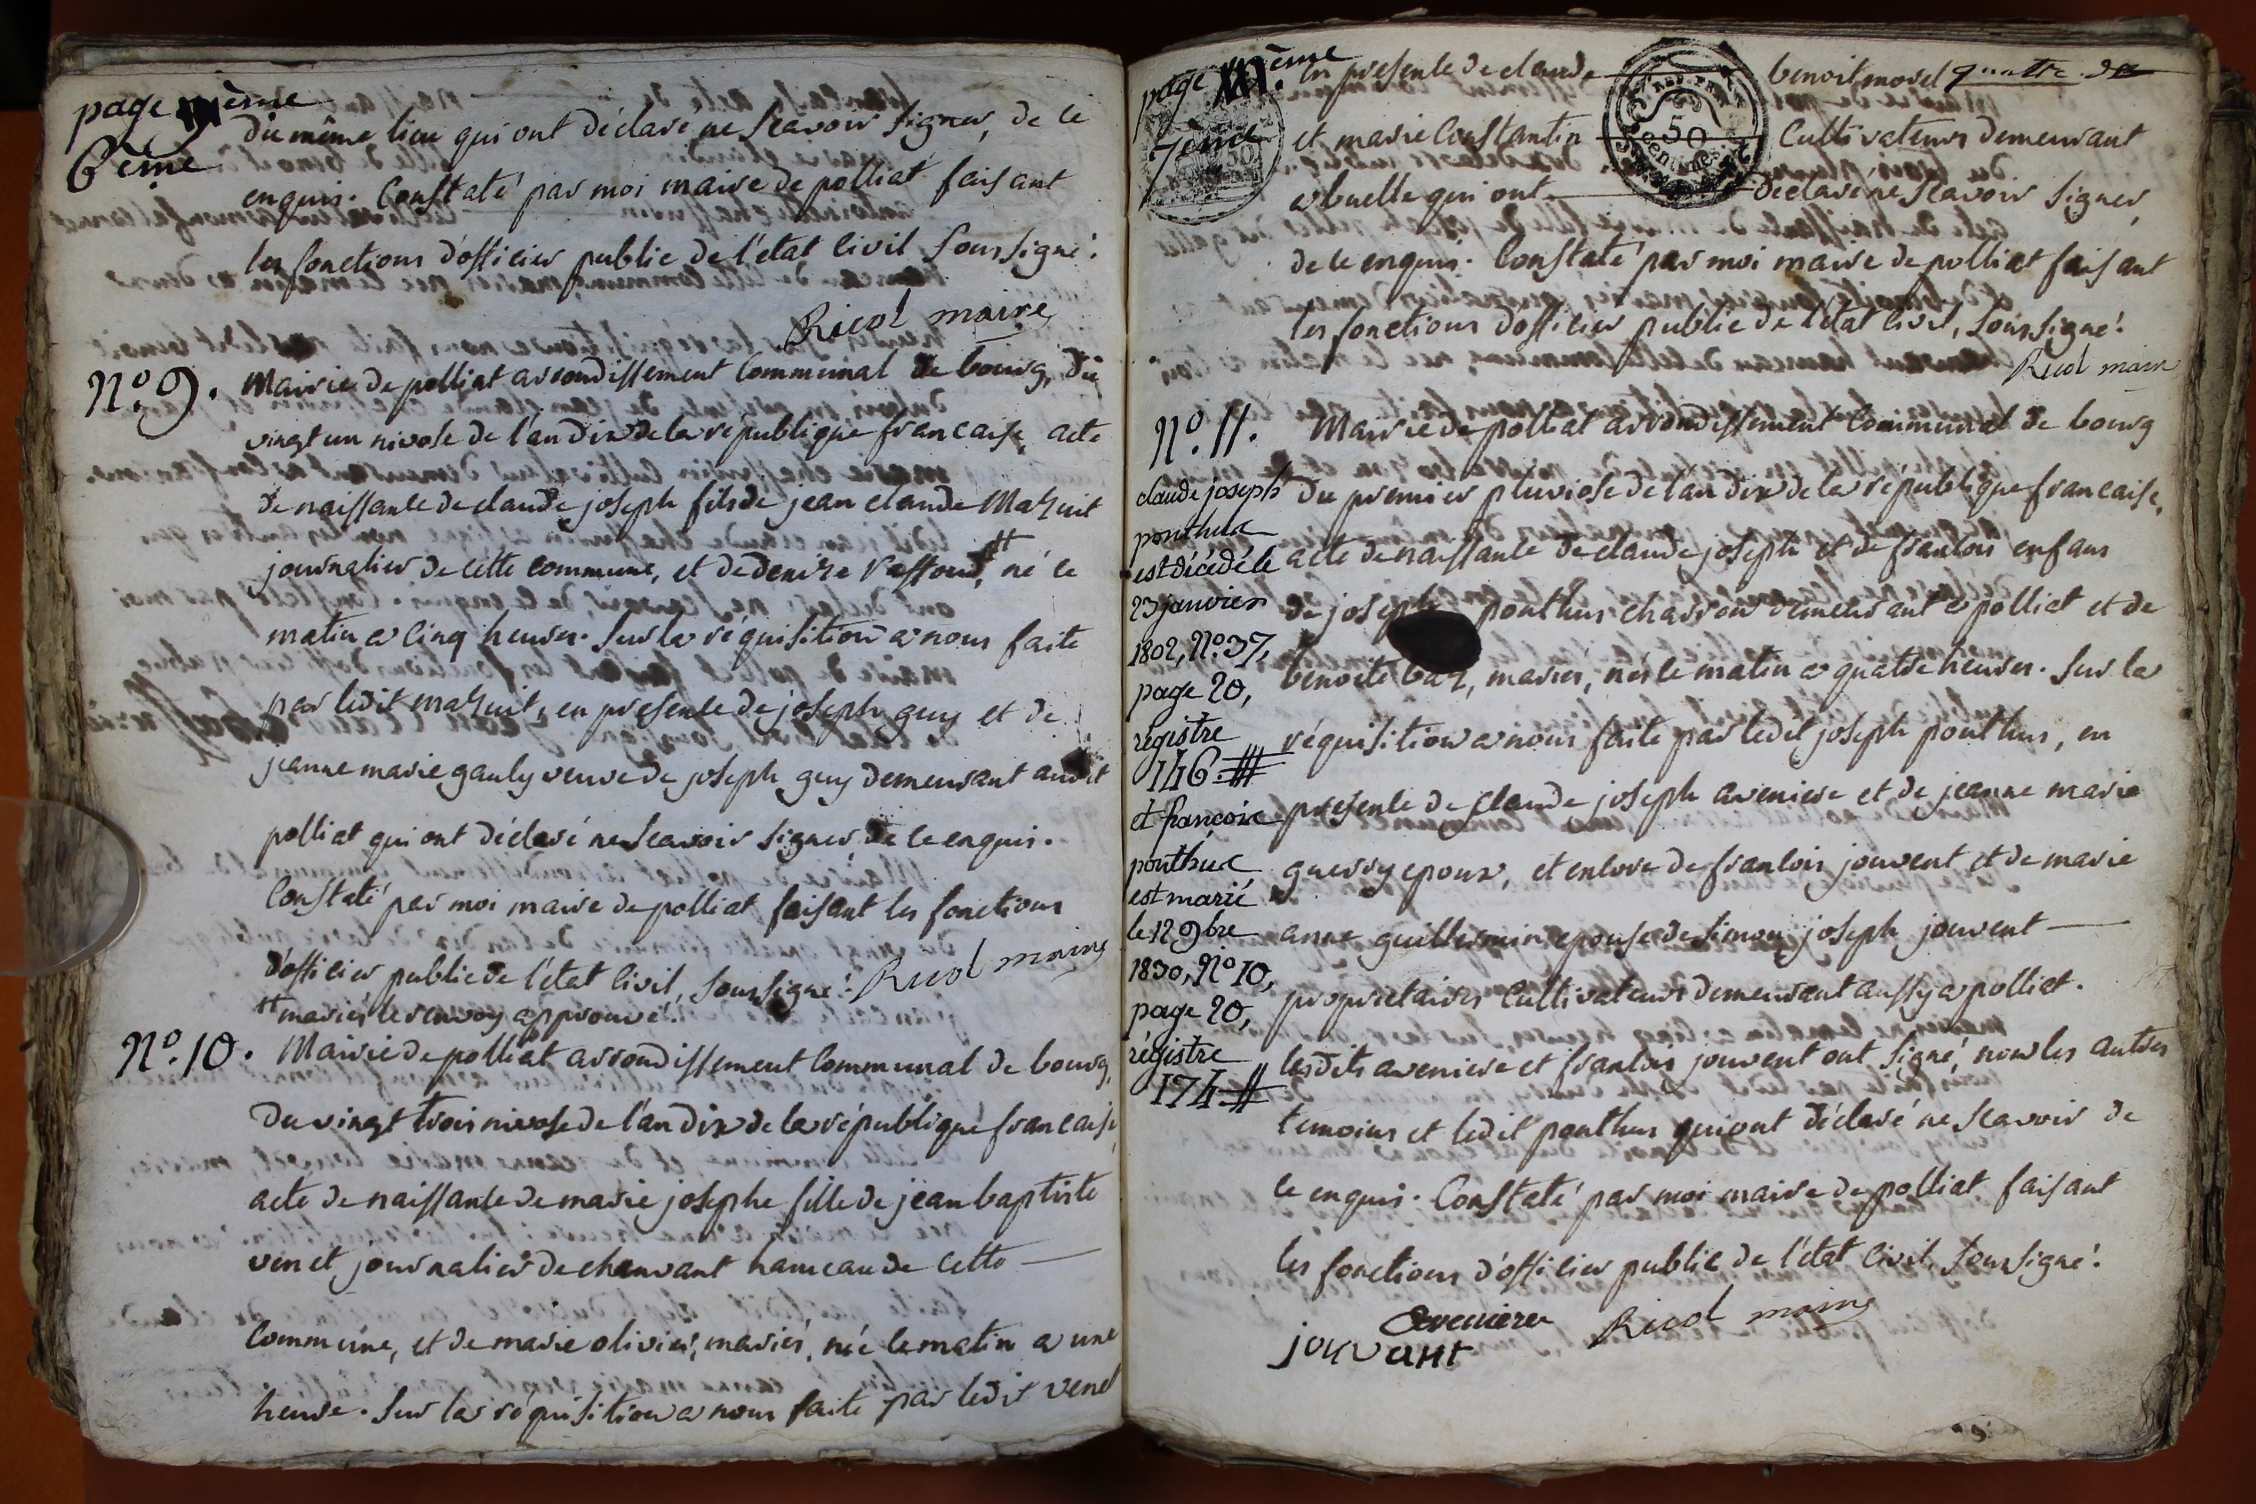 page ème
6ème
du même lieu qui ont déclaré ne scavoir signer, de ce
enquis. Constaté par moi maire de polliat faisant
les fonctions d'officier public de l'état civil soussigné.
Ricol maire
N°. 9. Mairie de polliat arrondissement Communal de bourg, du
vingt un nivose de l'an dix de la république francaise, acte
de naissance de claude joseph fils de jean claude Mazuit
journalier de cette commune, et de denize vassoud, # né ce
matin a cinq heures. Sur la réquisition a nous faite
par ledit mazuit, en presence de joseph guy et de
jeanne marie gauly veuve de joseph guy demeurant audit
polliat qui ont déclaré ne scavoir signer, de ce enquis.
Constaté par moi maire de polliat faisant les fonctions
d'officier public de l'état civil, soussigné. Ricol maire
# mariés le renvoy approuvé.
N°. 10. Mairie de polliat arrondissement Communal de bourg,
du vingt trois nivose de l'an dix de la république francaise,
acte de naissance de marie josephe fille de jean baptiste
venet journalier de chanvant hameau de cette
commune, et de marie olivier, mariés, née le matin a une
heure. Sur la réquisition a nous faite par ledit venet
page ème
7ème
en presence de claude benoit morel quatre
et marie Constantin Cultivateurs demeurant
a buelle qui ont déclaré ne scavoir signer,
de ce enquis. Constaté par moi maire de polliat faisant
les fonctions d'officier public de l'état civil, soussigné.
Ricol maire
REP. FRA.
50
Centimes
N°. 11. Mairie de polliat arrondissement Communal de bourg
du premier pluviose de l'an dix de la république francaise,
acte de naissance de claude joseph et de francois enfans
de joseph ponthus charron demeurant a polliat et de
benoite baz, mariés, nés le matin a quatre heures. Sur la
réquisition a nous faite par ledit joseph ponthus, en
presence de claude joseph aveniere et de jeanne marie
guerry epoux, et encore de francois jouvent et de marie
anne guillermin epouse de simon joseph jouvent
proprietaires Cultivateurs demeurant aussy a polliat.
lesdits aveniere et francois jouvent ont signé, non les autres
temoins et ledit ponthus qui ont déclaré ne scavoir de
ce enquis. Constaté par moi maire de polliat faisant
les fonctions d'officier public de l'état civil, soussigné.
aveniere Ricol maire
jouvant
claude joseph
ponthus
est décédé le
23 janvier
1802, N°. 37,
page 20,
régistre
146. #
et françois
ponthus
est marié
le 12 9bre
1830, N° 10,
page 20,
régistre
174. #